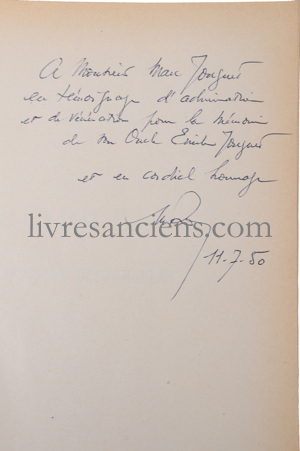 A Monsieur Marc Jouguet
en témoignage d'admiration
et de vénération pour la mémoire
de son Oncle Emile Jouguet
et en cordial hommage
livresanciens.com
11-7-50